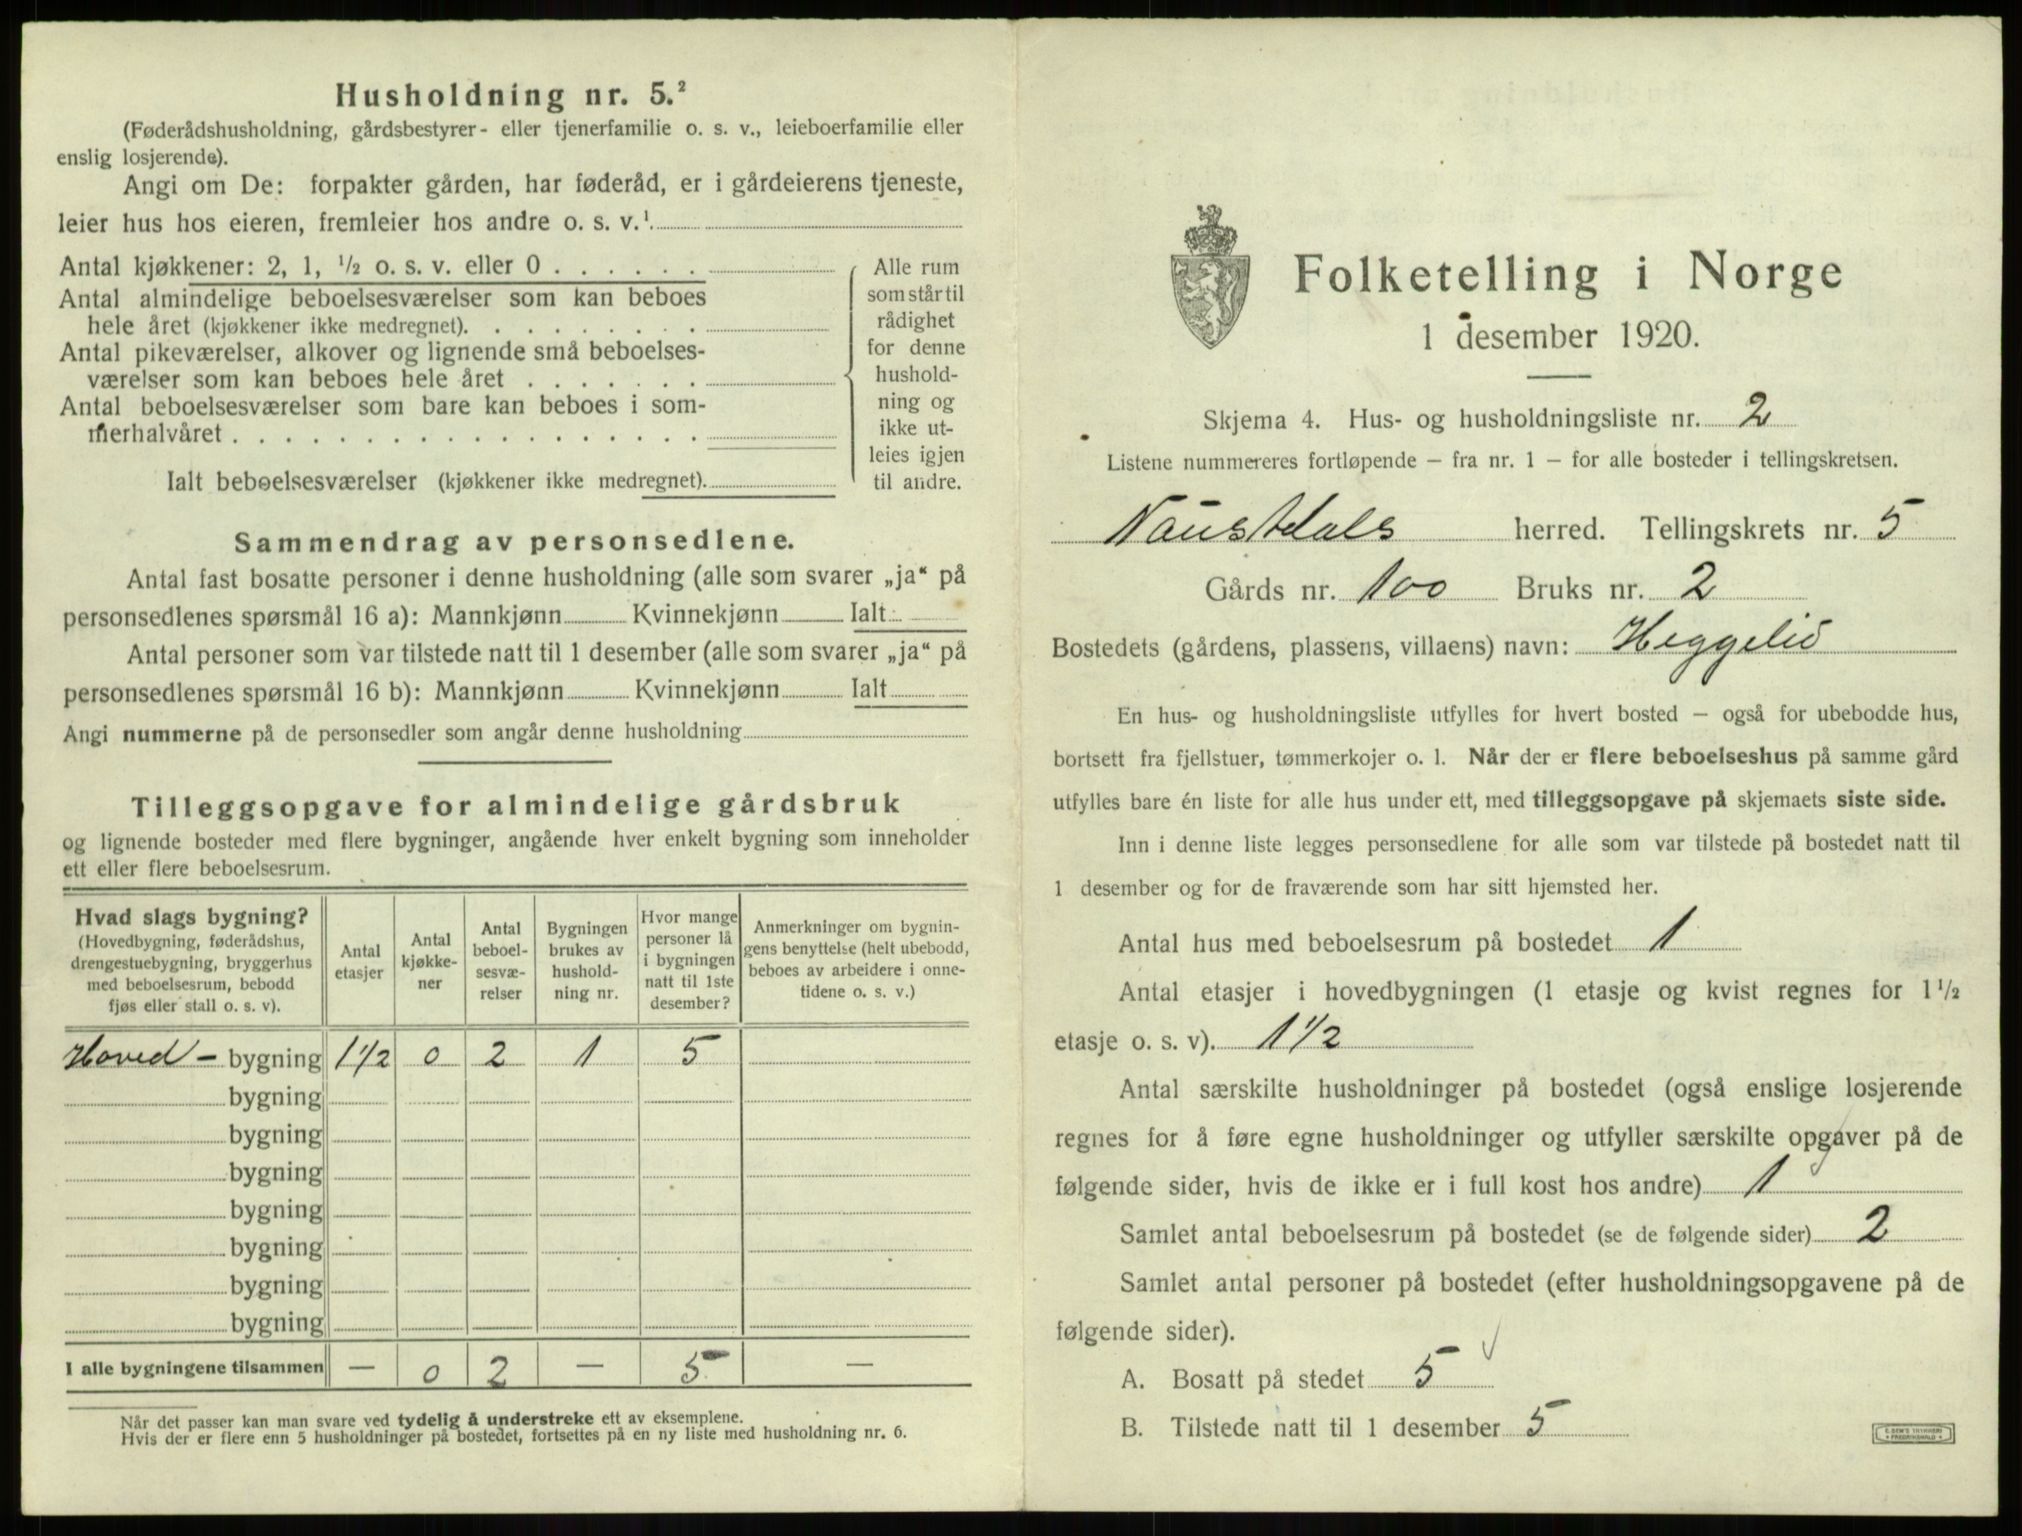 Husholdning nr. 5.²
(Føderådshusholdning, gårdsbestyrer- eller tjenerfamilie o. s. v., leieboerfamilie eller
enslig losjerende).
Angi om De: forpakter gården, har føderåd, er i gårdeierens tjeneste,
leier hus hos eieren, fremleier hos andre o. s. v.¹
Antal kjøkkener: 2, 1, ½ o. s. v. eller 0 . . . . . .
Antal almindelige beboelsesværelser som kan beboes
hele året (kjøkkener ikke medregnet). . . . . . . . .
Antal pikeværelser, alkover og lignende små beboelses-
værelser som kan beboes hele året . . . . . . .
Antal beboelsesværelser som bare kan beboes i som-
merhalvåret . . . . . . . . . . . . . . . . .
Ialt beboelsesværelser (kjøkkener ikke medregnet).
Alle rum
som står til
rådighet
for denne
hushold-
ning og
ikke ut-
leies igjen
til andre.
Sammendrag av personsedlene.
Antal fast bosatte personer i denne husholdning (alle som svarer „ja“ på
personsedlenes spørsmål 16 a): Mannkjønn Kvinnekjønn Ialt
Antal personer som var tilstede natt til 1 desember (alle som svarer „ja“ på
personsedlenes spørsmål 16 b): Mannkjønn Kvinnekjønn Ialt
Angi nummerne på de personsedler som angår denne husholdning
Tilleggsopgave for almindelige gårdsbruk
og lignende bosteder med flere bygninger, angående hver enkelt bygning som inneholder
ett eller flere beboelsesrum.
Hvad slags bygning?
(Hovedbygning, føderådshus,
drengestuebygning, bryggerhus
med beboelsesrum, bebodd
fjøs eller stall o. s. v).
Antal
etasjer
Antal
kjøkke-
ner
Antal
beboel-
sesvæ-
relser
Bygningen
brukes av
hushold-
ning nr.
Hvor mange
personer lå
i bygningen
natt til 1ste
desember?
Anmerkninger om bygnin-
gens benyttelse (helt ubebodd,
beboes av arbeidere i onne-
tidene o. s. v.)
Hoved – bygning 1½ 0 2 1 5
bygning
bygning
bygning
bygning
bygning
bygning
bygning
I alle bygningene tilsammen — 0 2 — 5 —
Når det passer kan man svare ved tydelig å understreke ett av eksemplene.
Hvis der er flere enn 5 husholdninger på bostedet, fortsettes på en ny liste med husholdning nr. 6.
Folketelling i Norge
1 desember 1920.
Skjema 4. Hus- og husholdningsliste nr. 2
Listene nummereres fortløpende – fra nr. 1 – for alle bosteder i tellingskretsen.
Naustdals herred. Tellingskrets nr. 5
Gårds nr. 100 Bruks nr. 2
Bostedets (gårdens, plassens, villaens) navn: Heggelid
En hus- og husholdningsliste utfylles for hvert bosted – også for ubebodde hus,
bortsett fra fjellstuer, tømmerkojer o. l. Når der er flere beboelseshus på samme gård
utfylles bare én liste for alle hus under ett, med tilleggsopgave på skjemaets siste side.
Inn i denne liste legges personsedlene for alle som var tilstede på bostedet natt til
1 desember og for de fraværende som har sitt hjemsted her.
Antal hus med beboelsesrum på bostedet 1
Antal etasjer i hovedbygningen (1 etasje og kvist regnes for 1½
etasje o. s. v). 1½
Antal særskilte husholdninger på bostedet (også enslige losjerende
regnes for å føre egne husholdninger og utfyller særskilte opgaver på de
følgende sider, hvis de ikke er i full kost hos andre) 1
Samlet antal beboelsesrum på bostedet (se de følgende sider) 2
Samlet antal personer på bostedet (efter husholdningsopgavene på de
følgende sider).
A. Bosatt på stedet 5
B. Tilstede natt til 1 desember 5